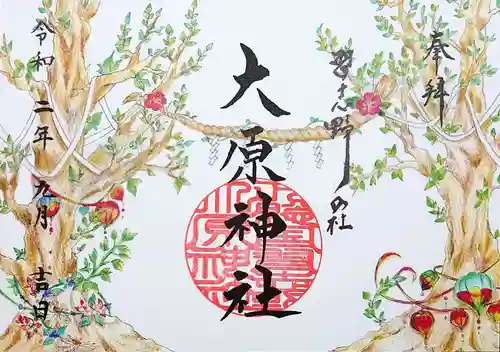 奉拝
野の社
大原神社
令和二年九月吉日